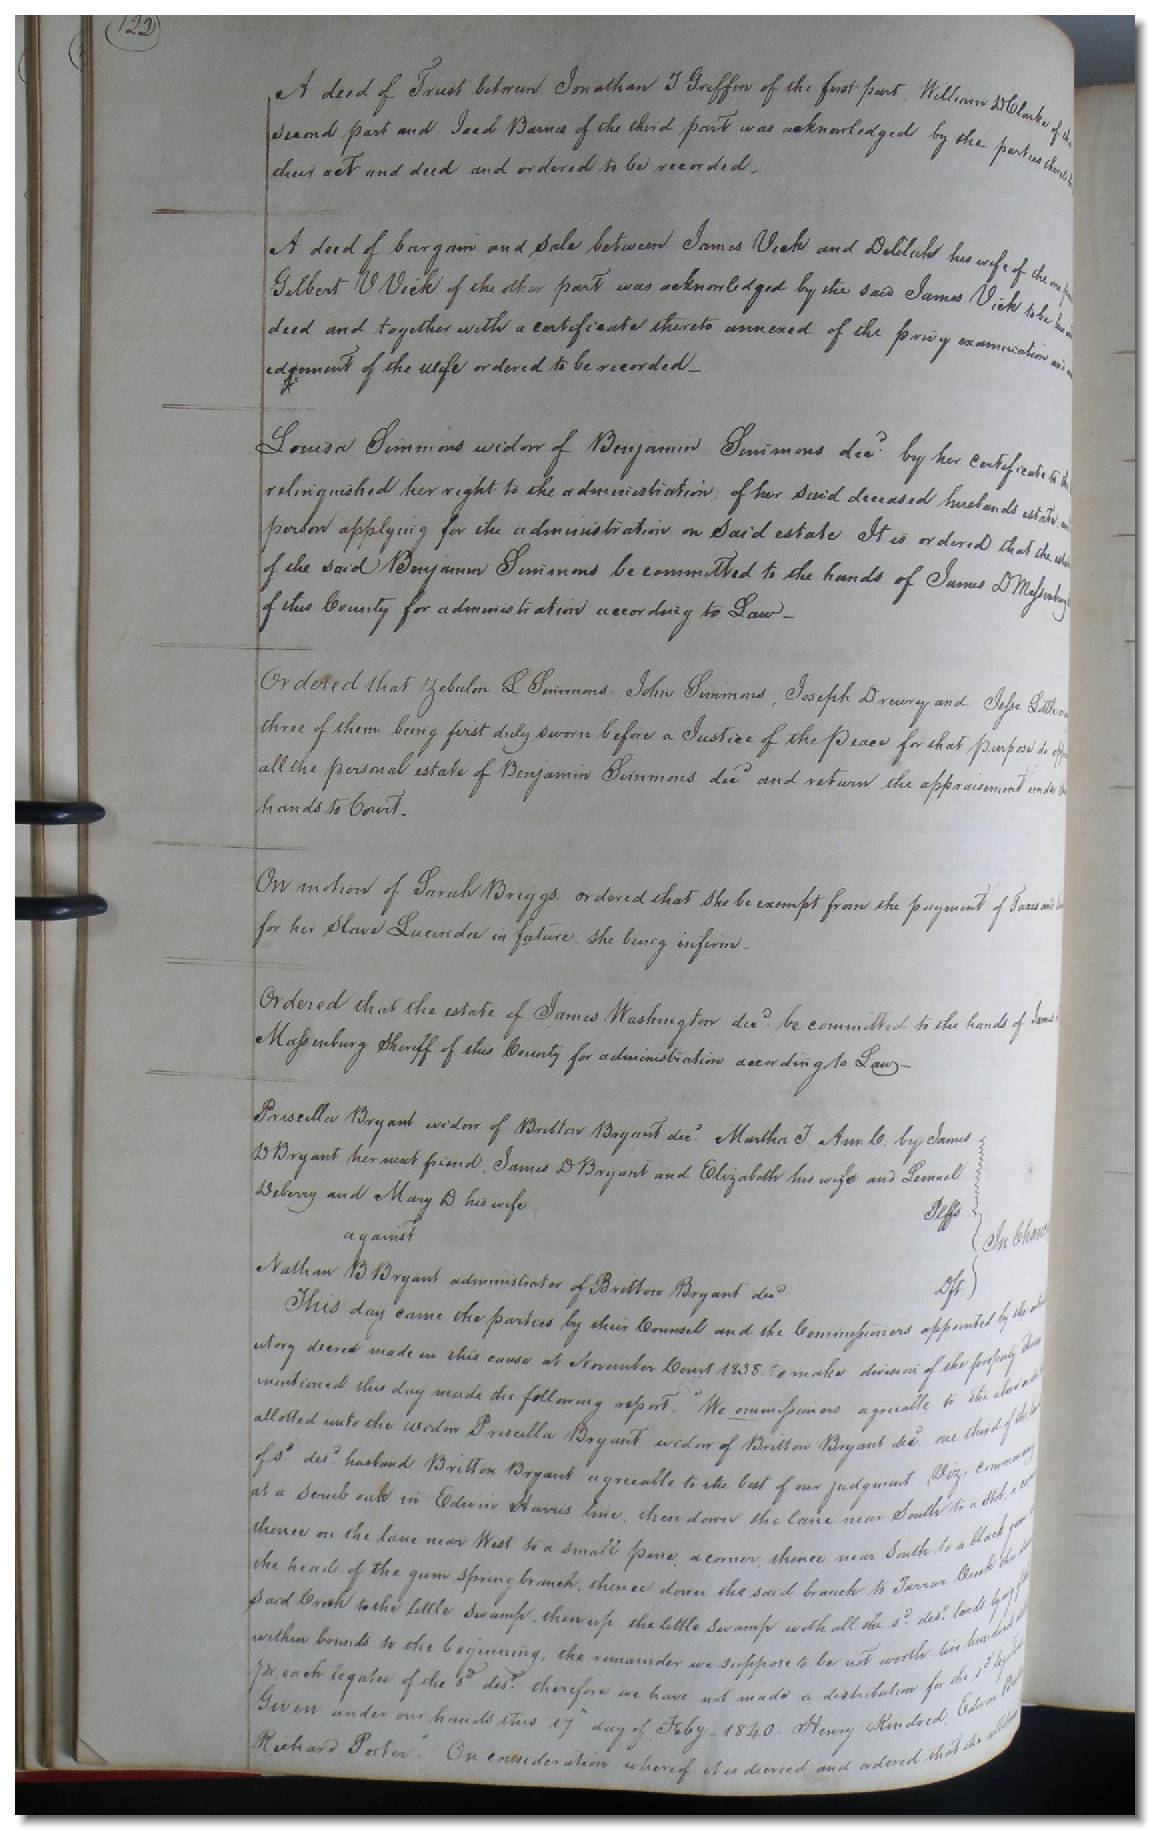 122
A deed of Trust between Jonathan T Griffin of the first part William D Clarke of the
second part and Joed Barnes of the third part was acknowledged by the parties thereto
their act and deed and ordered to be recorded.
A deed of bargain and sale between James Vick and Delilah his wife of the one
Gilbert V Vick of the other part was acknowledged by the said James Vick to be his
deed and together with a certificate thereto annexed of the privy examination and
edgement of the wife ordered to be recorded
Louisa Simmons widow of Benjamin Simmons decd. by her certificate to
relinquished her right to the administration of her said deceased husbands estate
person applying for the administration on said estate It is ordered that the
of the said Benjamin Simmons be committed to the hands of James D Massenburg
of this County for administration according to Law
Ordered that Zebulon L Simmons, John Simmons, Joseph Drewry and Jesse Little
three of them being first duly sworn before a Justice of the Peace for that purpose do
all the personal estate of Benjamin Simmons decd and return the appraisement under
hands to Court.
On motion of Sarah Briggs ordered that she be exempt from the payment of Taxes and
for her slave Lucinda in future she being infirm
Ordered that the estate of James Washington decd. be committed to the hands of James
Massenburg Sheriff of this County for administration according to Law
Priscilla Bryant widow of Britton Bryant decd. Martha T. Ann C. by James
D Bryant her next friend, James D Bryant and Elizabeth his wife and Lemuel
Deberry and Mary D his wife
Plffs
against
In Chan
Nathan B Bryant administrator of Britton Bryant decd
Dft.
This day came the parties by their Counsel and the Commissioners appointed by the
utory decree made in this cause at November Court 1838 to make division of the property
mentioned this day made the following report. "We ommissioners agreeable to the above
allotted unto the widow Priscilla Bryant widow of Britton Bryant decd. one third of the
of sd. desd. husband Britton Bryant agreeable to the best of our judgment, Viz, commencing
at a scrub oak in Edwin Harris line, then down the lane near South to a
thence on the lane near West to a small pine, a corner, thence near South to a black gum
the head of the gum spring branch, thence down the said branch to Tarrar Creek
said Creek to the little swamp, then up the little swamp with all the sd. desd. lands
within bounds to the beginning, the remainder we suppose to be not worth
for each legatee of the sd. desd. therefore we have not made a distribution for the sd.
Given under our hands this 17" day of Feby. 1840. Henry Kindred, Edwin
Richard Porter." On consideration whereof it is decreed and ordered that the